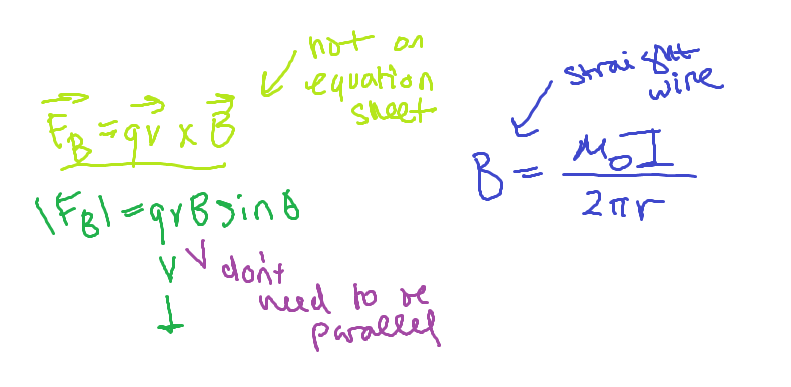 not on
equation
sheet
F_B = qv × B
|F_B| = qvB sin θ
don't
need to be
parallel
straight
wire
B = μ₀I / 2πr